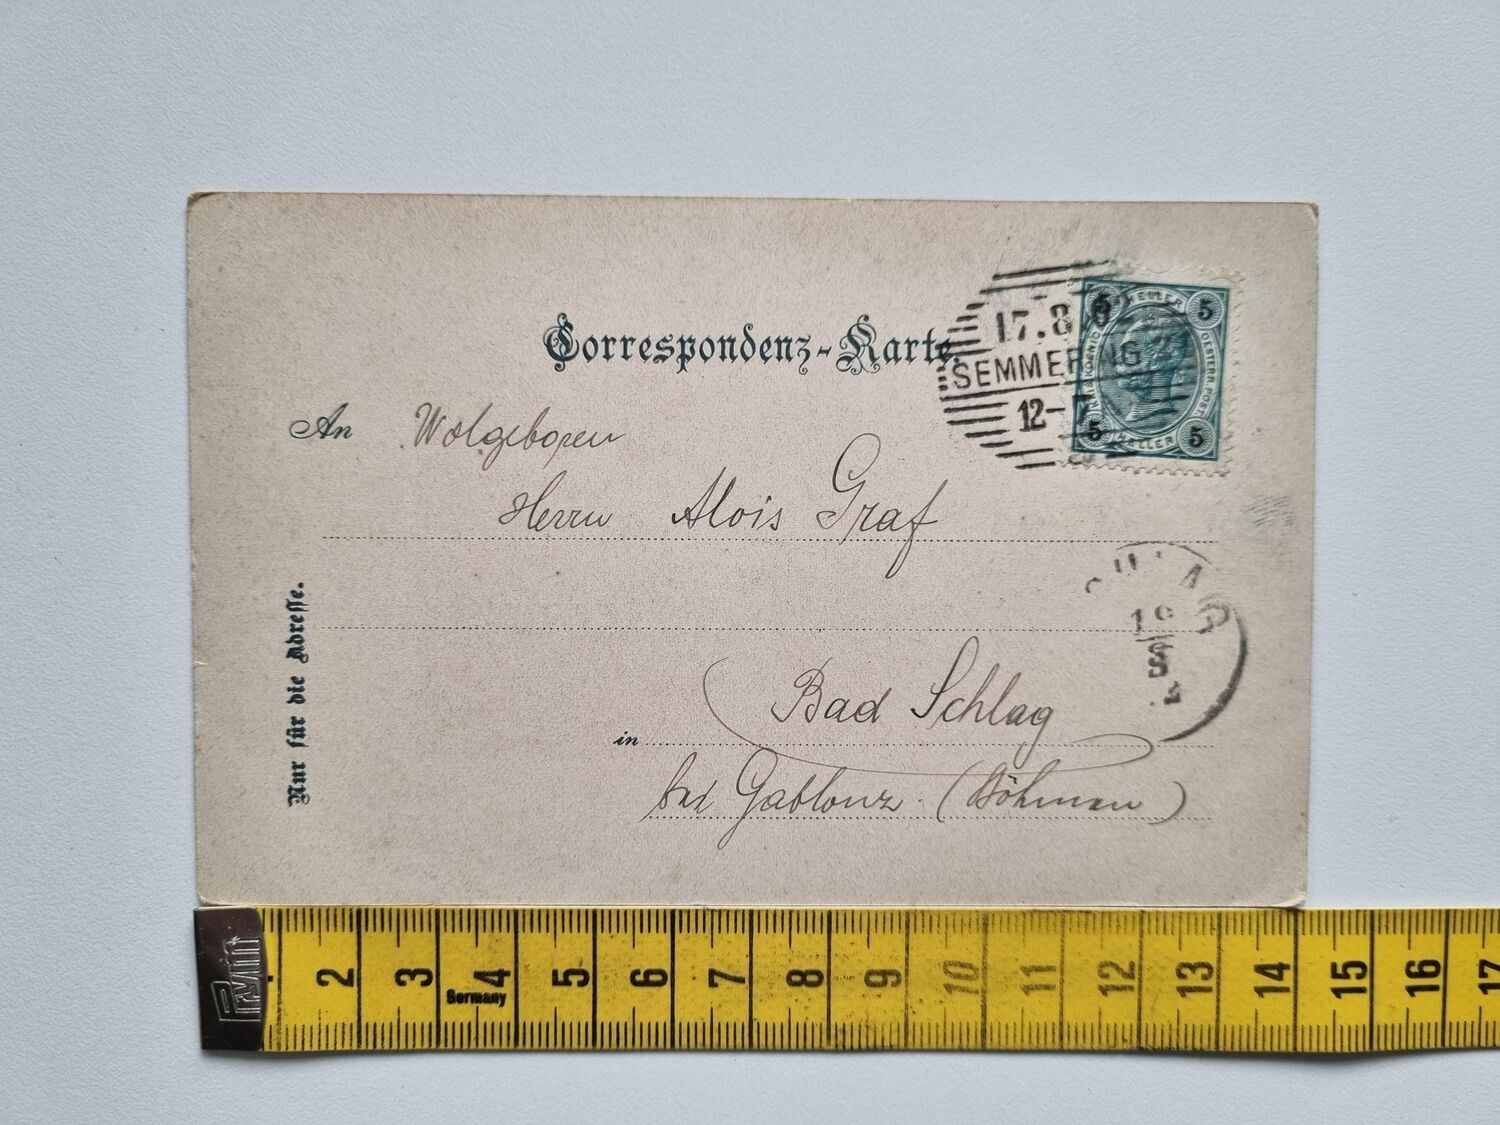 Correspondenz-Karte.
17.8
SEMMERING
12-
5 HELLER 5
KAIS. KOENIG. OESTERR. POST
5 HELLER 5
An Wolgeboren
Herrn Alois Graf
Nur für die Adresse.
in Bad Schlag
bei Gablonz. (Böhmen)
8
2 3 4 5 6 7 8 9 10 11 12 13 14 15 16 17
Germany
Prym